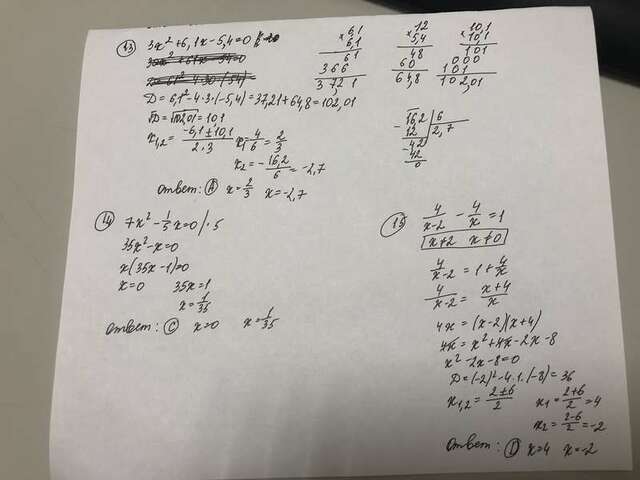 13 3x²+6,1x-5,4=0
D=6,1²-4·3·(-5,4)=37,21+64,8=102,01
√D=√102,01=10,1
x₁,₂=-6,1±10,1/2·3 x₁=4/6=2/3
x₂=-16,2/6=-2,7
Ответ: x=2/3 x=-2,7
×6,1
6,1
61
366
37,21
×12
5,4
48
60
64,8
×10,1
10,1
101
000
101
102,01
-16,2|6
12|2,7
-42
42
0
14 7x²-1/5x=0/·5
35x²-x=0
x(35x-1)=0
x=0 35x=1
x=1/35
Ответ: C x=0 x=1/35
15 4/x-2 - 4/x=1
x≠2 x≠0
4/x-2=1+4/x
4/x-2=x+4/x
4x=(x-2)(x+4)
4x=x²+4x-2x-8
x²-2x-8=0
D=(-2)²-4·1·(-8)=36
x₁,₂=2±6/2 x₁=2+6/2=4
x₂=2-6/2=-2
Ответ: D x=4 x=-2